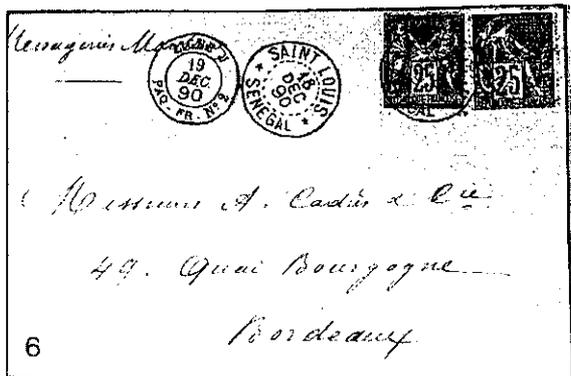 Messageries
LIGNE J
19
DEC.
90
PAQ. FR. Nº 2
SAINT LOUIS
18
DEC
90
SENEGAL
25
25
Messieurs A. & Cie
49. Quai Bourgogne
Bordeaux
6